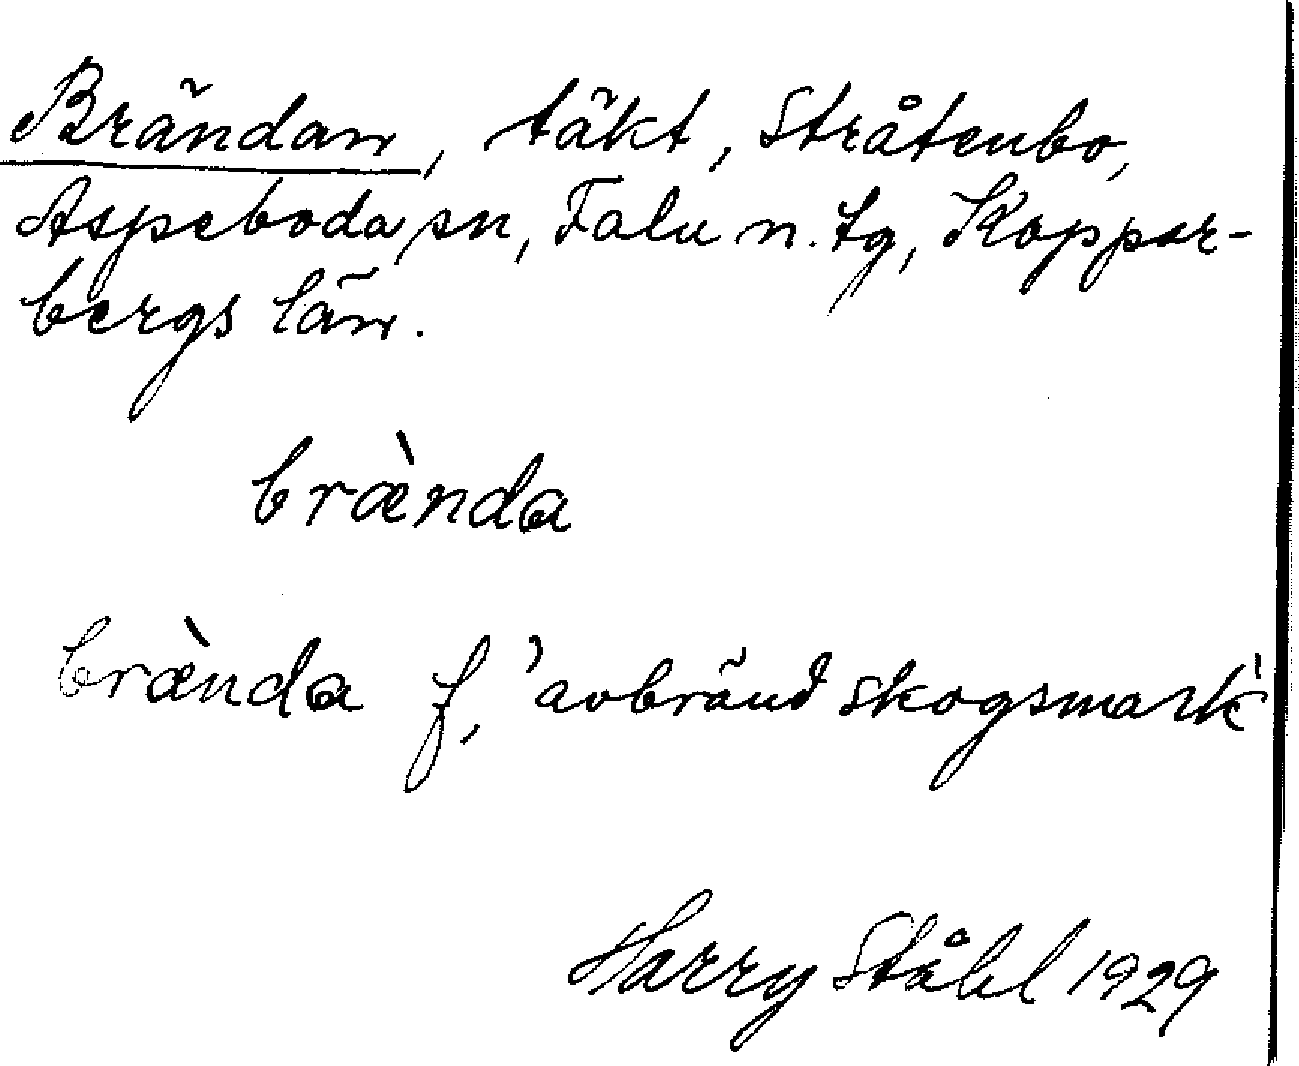 Brändan, täkt, Stråtenbo,
Aspeboda sn, Falu n. tg, Koppar-
bergs län.
bræ̀nda
bræ̀nda f, 'avbränd skogsmark'
Harry Ståhl 1929